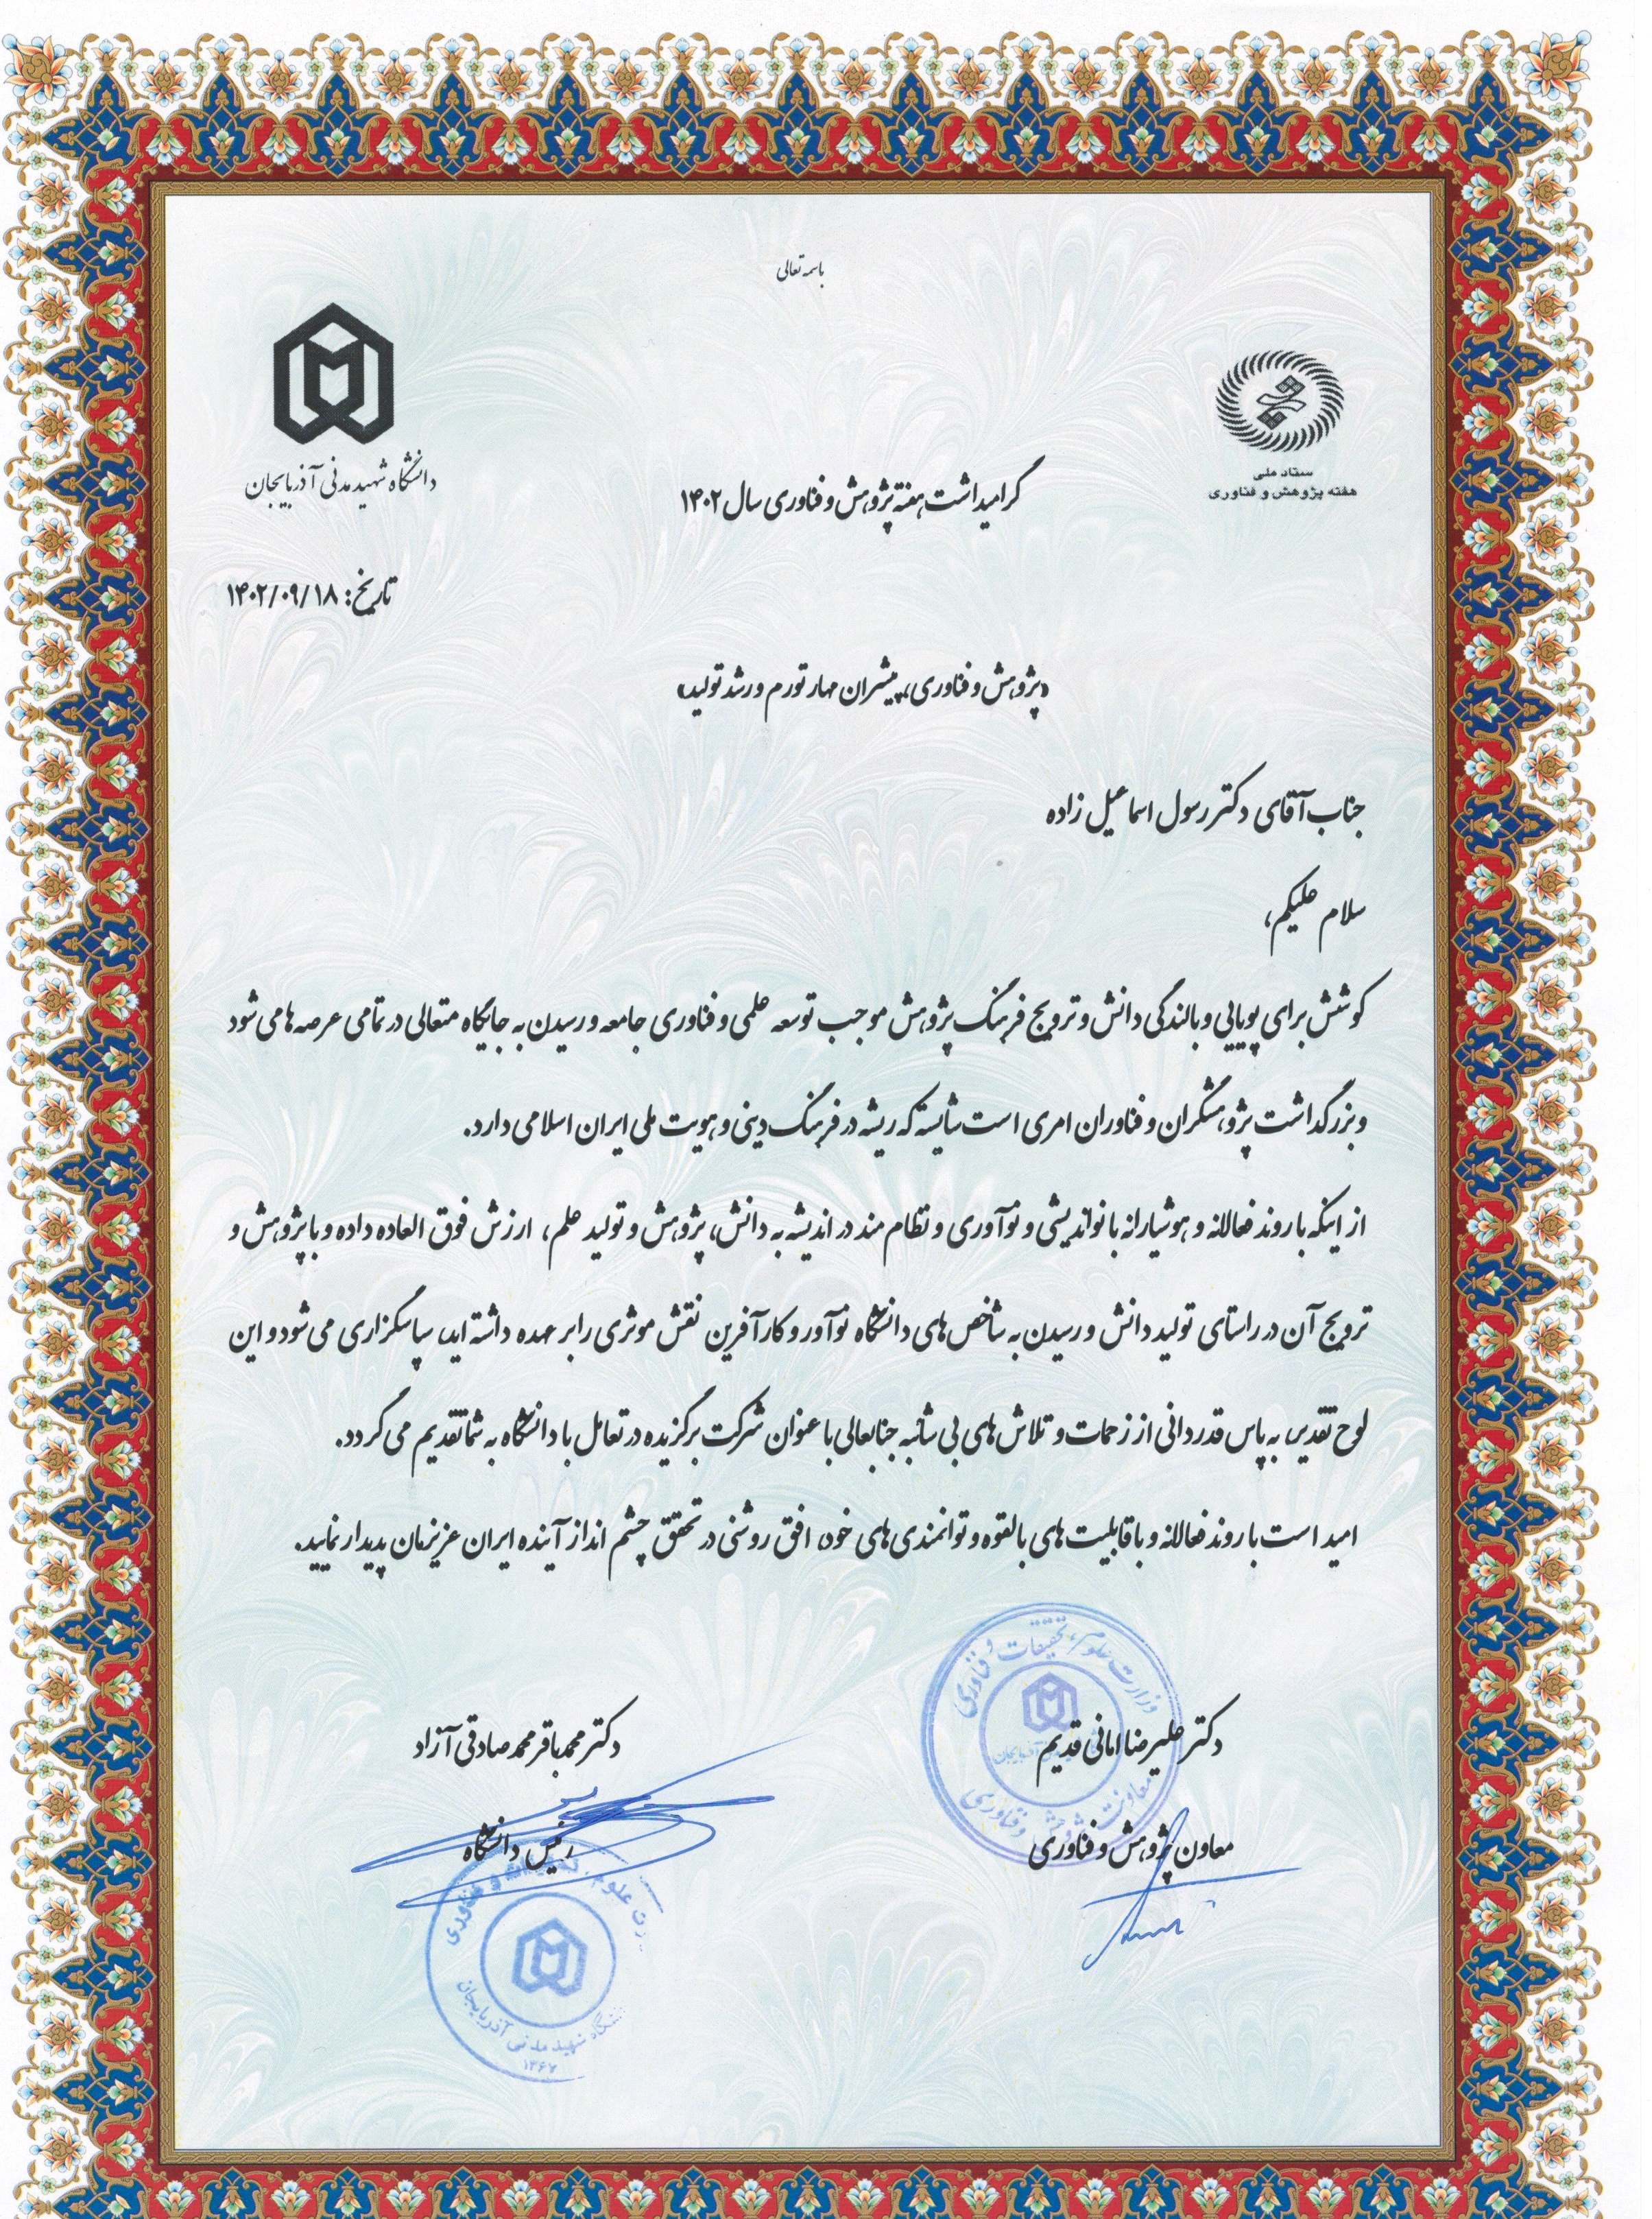 باسمه تعالی
ستاد ملی
هفته پژوهش و فناوری
دانشگاه شهید مدنی آذربایجان
گرامیداشت هفته پژوهش و فناوری سال ۱۴۰۲
تاریخ: ۱۴۰۲/۰۹/۱۸
«پژوهش و فناوری، پیشران مهار تورم و رشد تولید»
جناب آقای دکتر رسول اسماعیل زاده
سلام علیکم،
کوشش برای پویایی و بالندگی دانش و ترویج فرهنگ پژوهش موجب توسعه علمی و فناوری جامعه و رسیدن به جایگاه متعالی در تمامی عرصه ها می شود
و بزرگداشت پژوهشگران و فناوران امری است شایسته که ریشه در فرهنگ دینی و هویت ملی ایران اسلامی دارد.
از اینکه با روند فعالانه و هوشیارانه با نواندیشی و نوآوری و نظام مند در اندیشه به دانش، پژوهش و تولید علم، ارزش فوق العاده داده و با پژوهش و
ترویج آن در راستای تولید دانش و رسیدن به شاخص های دانشگاه نوآور و کارآفرین نقش موثری را بر عهده داشته اید، سپاسگزاری می شود و این
لوح تقدیر، به پاس قدردانی از زحمات و تلاش های بی شائبه جنابعالی با عنوان شرکت برگزیده در تعامل با دانشگاه به شما تقدیم می گردد.
امید است با روند فعالانه و با قابلیت های بالقوه و توانمندی های خود، افق روشنی در تحقق چشم انداز آینده ایران عزیزمان پدیدار نمایید.
وزارت علوم، تحقیقات و فناوری
معاونت پژوهش و فناوری
دکتر علیرضا امانی قدیم
معاون پژوهش و فناوری
دکتر محمدباقر محمدصادقی آزاد
رئیس دانشگاه
علوم، و فناوری
شهید مدنی آذربایجان
۱۳۶۷